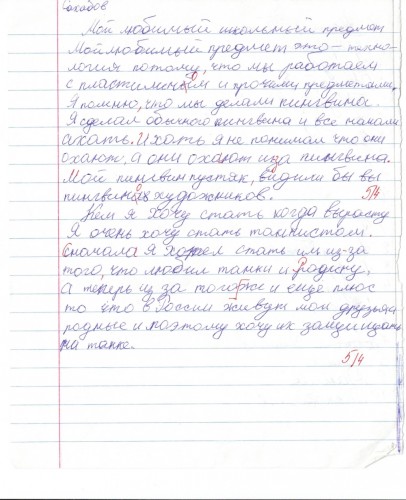 Сахабов
Мой любимый школьный предмет
Мой любимый предмет это – техно-
логия потому, что мы работаем
с пластилином и прочими предметами.
Я помню, что мы делали пингвинов.
Я сделал обычного пингвина и все начали
ахать. И хоть я не понимал что они
охают, а они охают из за пингвина.
Мой пингвин пустяк, видили бы вы
пингвинов художников. 5/4
Кем я хочу стать когда вырасту
Я очень хочу стать танкистом.
Сначала я хотел стать им из-за
того, что любил танки и Родину,
а теперь из за того же и еще плюс
то что в России живут мои друзья
родные и поэтому хочу их защищать
на танке.
5/4